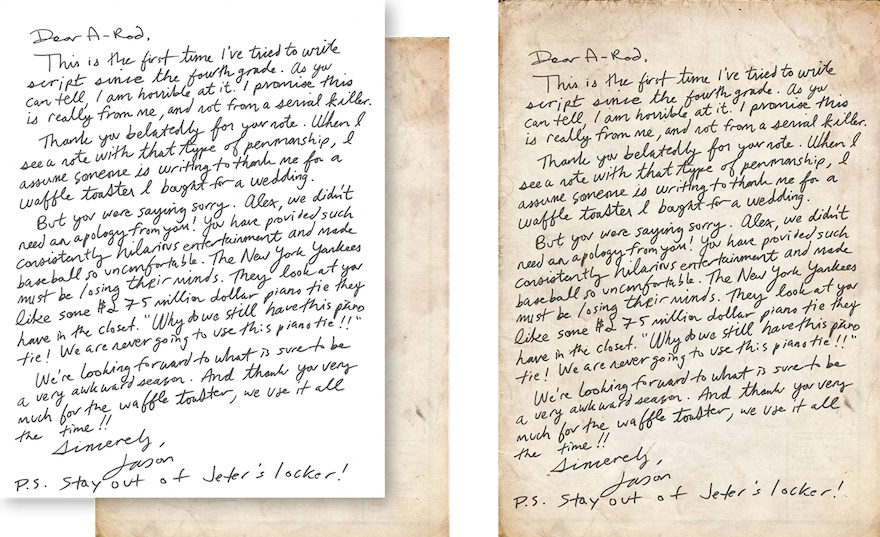 Dear A-Rod,
This is the first time I've tried to write
script since the fourth grade. As you
can tell, I am horrible at it. I promise this
is really from me, and not from a serial killer.
Thank you belatedly for your note. When I
see a note with that type of penmanship, I
assume someone is writing to thank me for a
waffle toaster I bought for a wedding.
But you were saying sorry. Alex, we didn't
need an apology from you! You have provided such
consistently hilarious entertainment and made
baseball so uncomfortable. The New York Yankees
must be losing their minds. They look at you
like some $275 million dollar piano tie they
have in the closet. "Why do we still have this piano
tie! We are never going to use this piano tie!!"
We're looking forward to what is sure to be
a very awkward season. And thank you very
much for the waffle toaster, we use it all
the time!!
Sincerely,
Jason
P.S. Stay out of Jeter's locker!
Dear A-Rod,
This is the first time I've tried to write
script since the fourth grade. As you
can tell, I am horrible at it. I promise this
is really from me, and not from a serial killer.
Thank you belatedly for your note. When I
see a note with that type of penmanship, I
assume someone is writing to thank me for a
waffle toaster I bought for a wedding.
But you were saying sorry. Alex, we didn't
need an apology from you! You have provided such
consistently hilarious entertainment and made
baseball so uncomfortable. The New York Yankees
must be losing their minds. They look at you
like some $275 million dollar piano tie they
have in the closet. "Why do we still have this piano
tie! We are never going to use this piano tie!!"
We're looking forward to what is sure to be
a very awkward season. And thank you very
much for the waffle toaster, we use it all
the time!!
Sincerely,
Jason
P.S. Stay out of Jeter's locker!